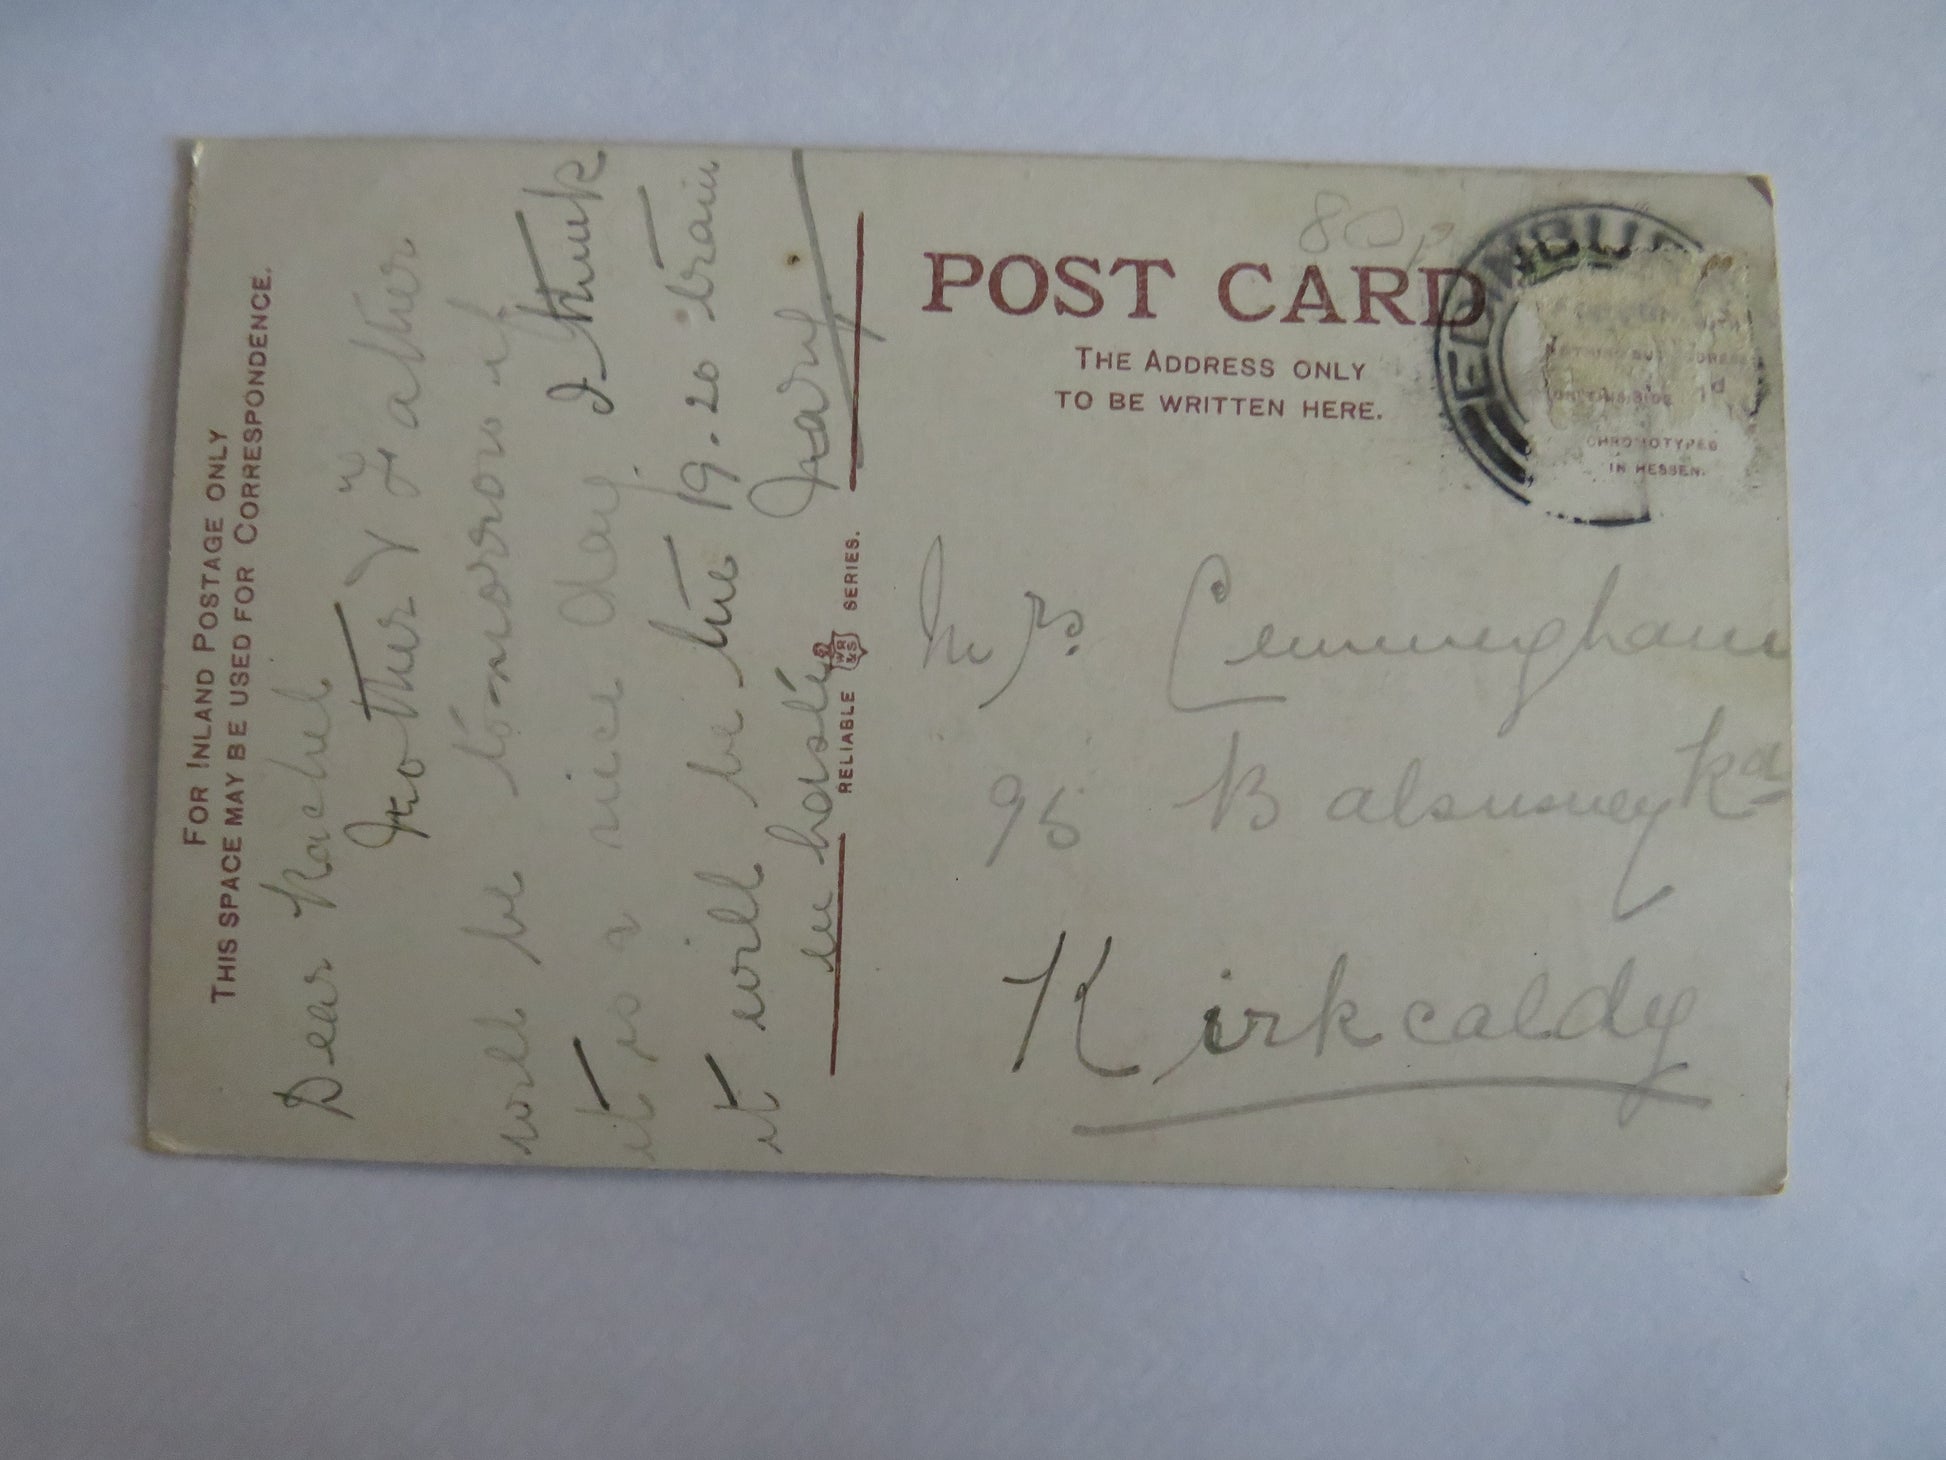 FOR INLAND POSTAGE ONLY
THIS SPACE MAY BE USED FOR CORRESPONDENCE.
Dear Rachel
Mother & Father
will be to-morrow if
it is a nice day I think
it will be the 19.20 train
in haste
Mary
RELIABLE WR & S SERIES.
80p
POST CARD
THE ADDRESS ONLY
TO BE WRITTEN HERE.
EDINBU
CHROMOTYPED
IN HESSEN.
Mrs Cunningham
95 Balsusney Rd
Kirkcaldy